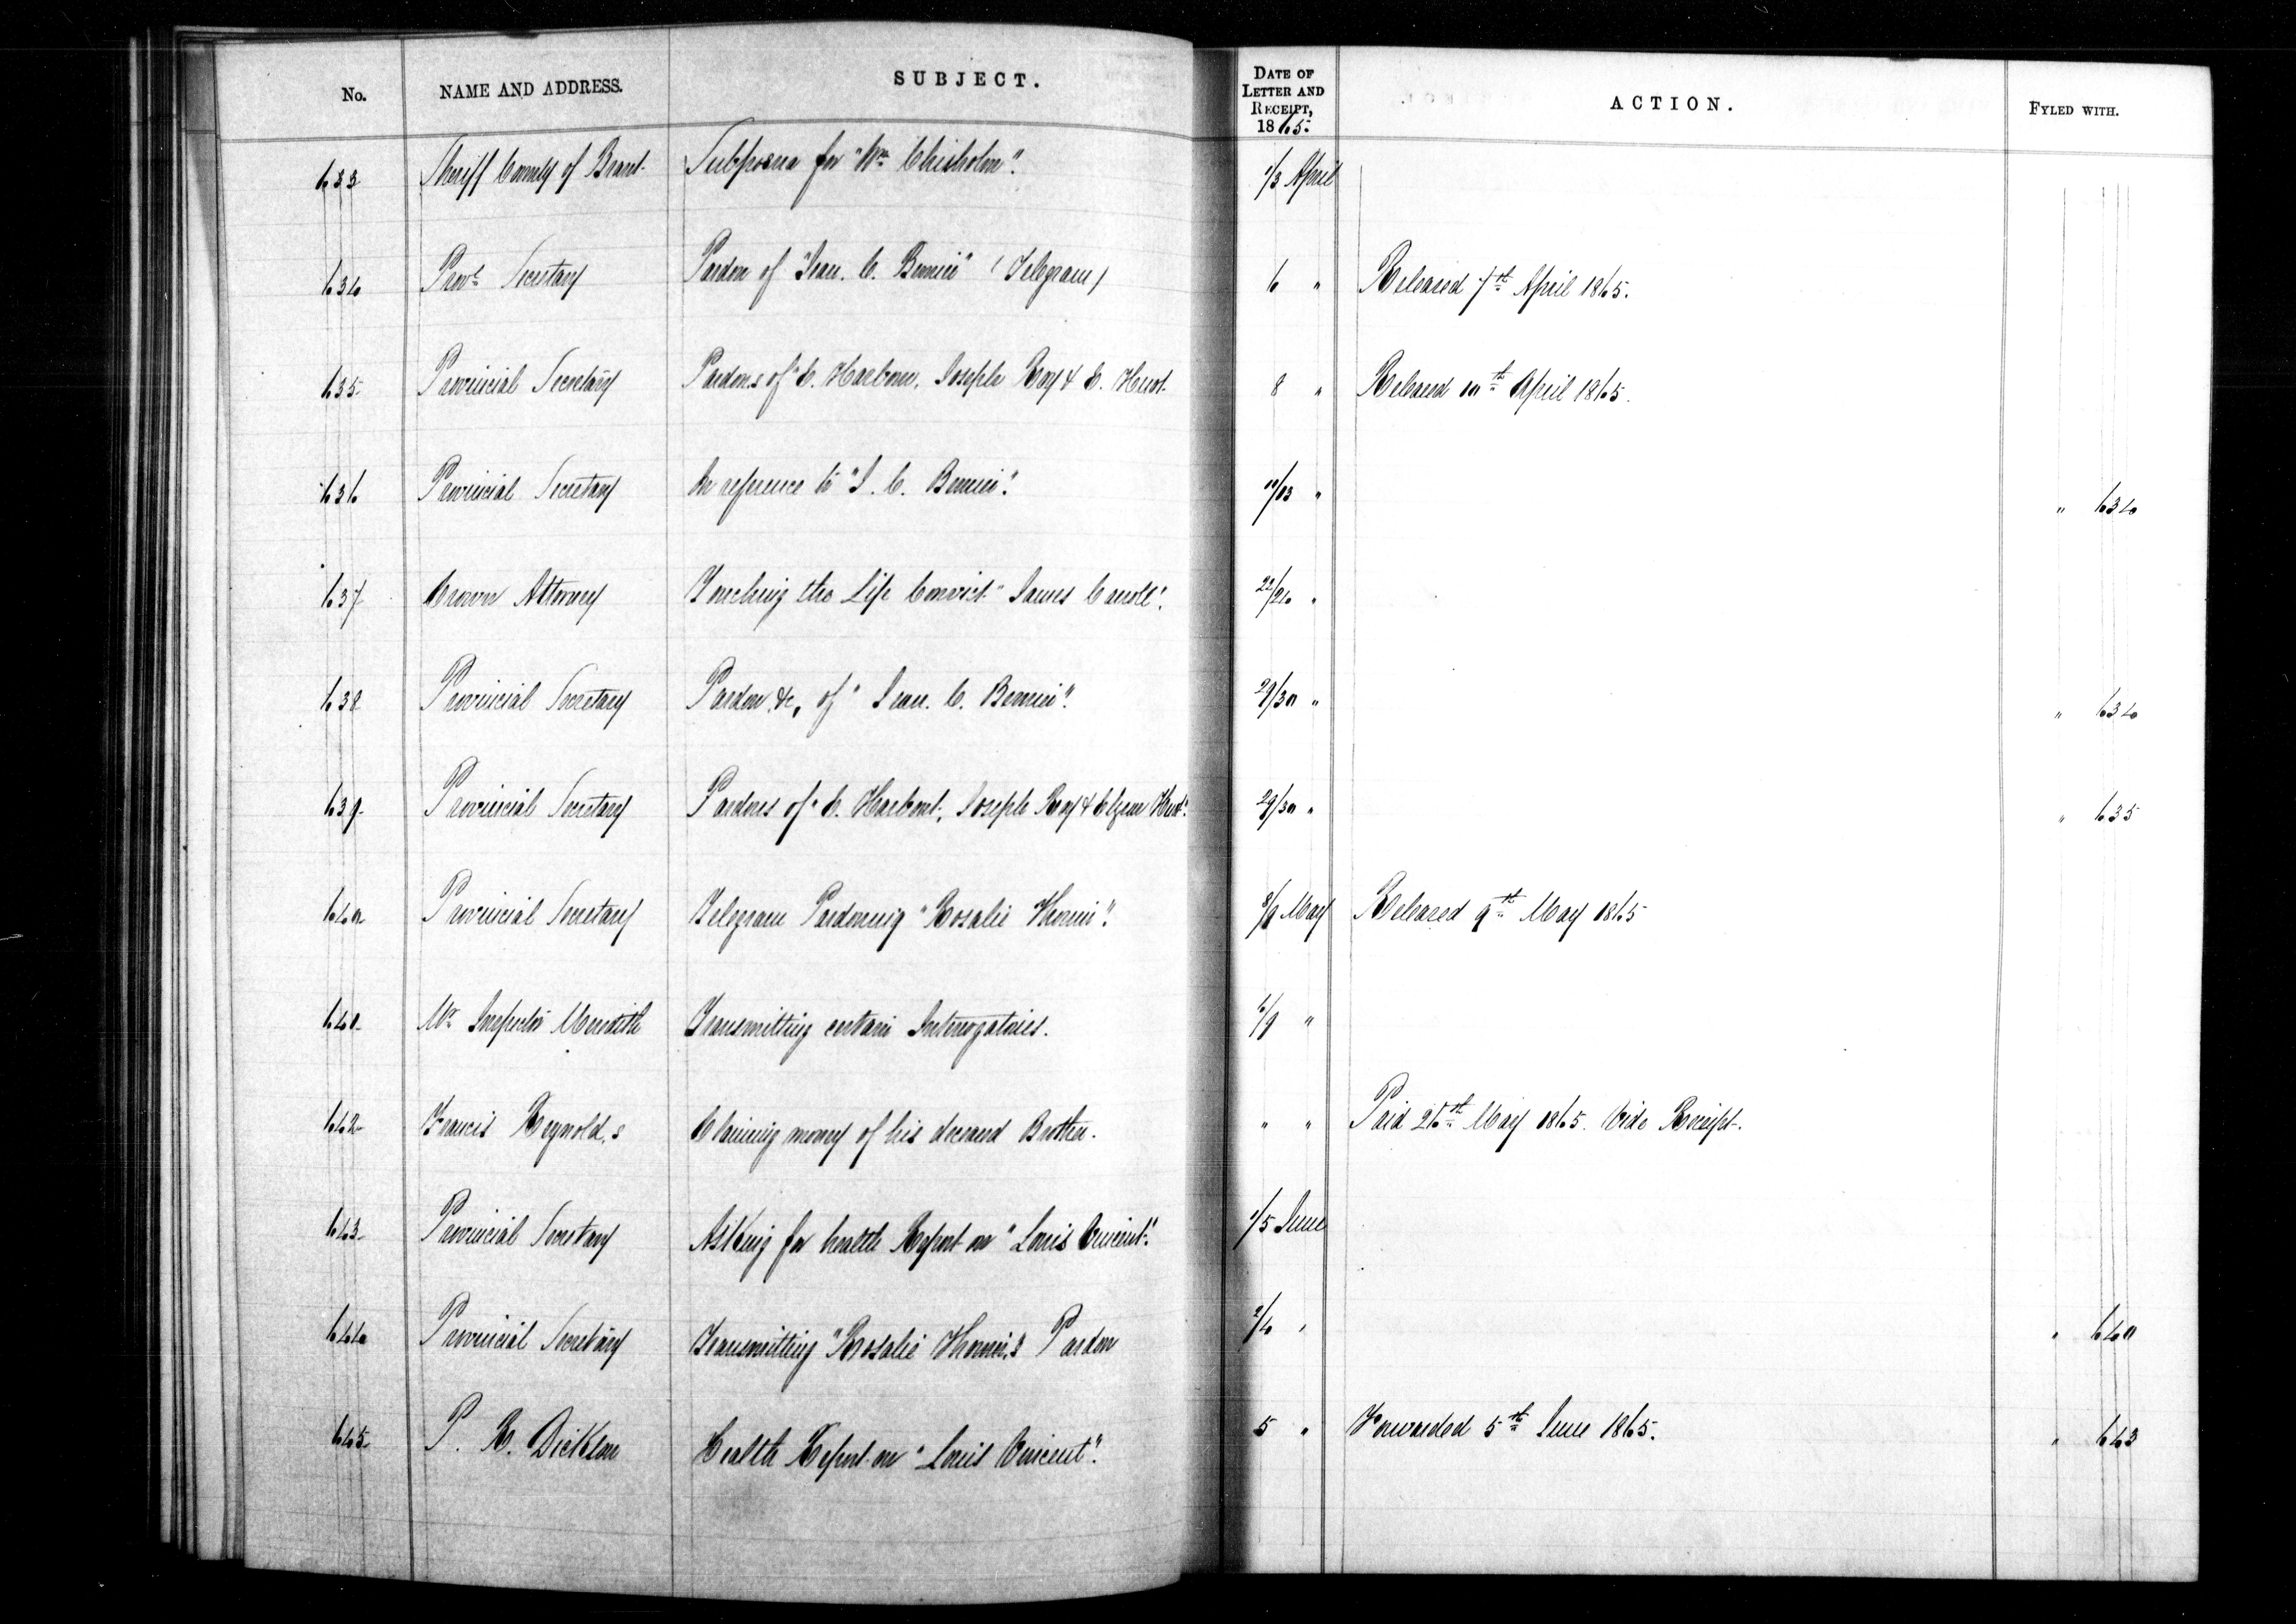 No. NAME AND ADDRESS. SUBJECT. DATE OF LETTER AND RECEIPT, 1865. ACTION. FYLED WITH.
633 Sheriff County of Brant. Subpoena for "Wm Chisholm". 1/3 April
634 Provl Secretary Pardon of "Jean. C. Bernier" (Telegram) 6 " Released 7th April 1865.
635 Provincial Secretary Pardons of "C. Joseph Roy & E. Huot. 8 " Released 10th April 1865.
636 Provincial Secretary In reference to "J. C. Bernier". 10/13 " " 634
637 Crown Attorney Touching the Life Convict "James Carroll". 22/24 "
638 Provincial Secretary Pardon &c, of "Jean. C. Bernier". 29/30 " " 634
639 Provincial Secretary Pardons of "C. Joseph Roy & Elzear Huot". 29/30 " " 635
640 Provincial Secretary Telegram Pardoning "Rosalie 8/9 May Released 9th May 1865
641 Mr Inspector Meredith Transmitting certain Interrogatories. 6/9 "
642 Francis Reynold,s Claiming money of his deceased Brother. " " Paid 26th May 1865. Vide Receipt.
643 Provincial Secretary Asking for health Report on "Louis Vincent". 1/5 June
644 Provincial Secretary Transmitting "Rosalie Pardon 2/4 " " 640
645 P. Health Report on "Louis Vincent". 5 " Forwarded 5th June 1865. " 643